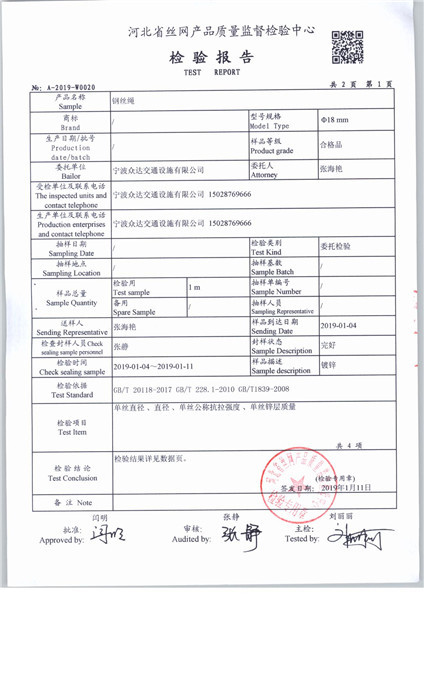 河北省丝网产品质量监督检验中心
检验报告
TEST REPORT
№: A-2019-W0020 共 2 页 第 1 页
产品名称 Sample 钢丝绳
商标 Brand / 型号规格 Model Type Φ18 mm
生产日期/批号 Production date/batch / 样品等级 Product grade 合格品
委托单位 Bailor 宁波众达交通设施有限公司 委托人 Attorney 张海艳
受检单位及联系电话 The inspected units and contact telephone 宁波众达交通设施有限公司 15028769666
生产单位及联系电话 Production enterprises and contact telephone 宁波众达交通设施有限公司 15028769666
抽样日期 Sampling Date / 检验类别 Test Kind 委托检验
抽样地点 Sampling Location / 抽样基数 Sample Batch /
样品总量 Sample Quantity 检验用 Test sample 1 m 抽样单编号 Sample Number /
备用 Spare Sample / 抽样人员 Sampling Representative /
送样人 Sending Representative 张海艳 样品到达日期 Sending Date 2019-01-04
检查封样人员Check sealing sample personnel 张静 封样状态 Sample Description 完好
检验时间 Check sealing sample 2019-01-04～2019-01-11 样品描述 Sample description 镀锌
检验依据 Test Standard GB/T 20118-2017 GB/T 228.1-2010 GB/T1839-2008
检验项目 Test Item 单丝直径、直径、单丝公称抗拉强度、单丝锌层质量
共 4 项
检验结论 Test Conclusion 检验结果详见数据页。
(检验专用章)
签发日期: 2019年1月11日
备注 Note
闫明 张静 刘丽丽
批准: Approved by: 审核: Audited by: 张静 主检: Tested by: